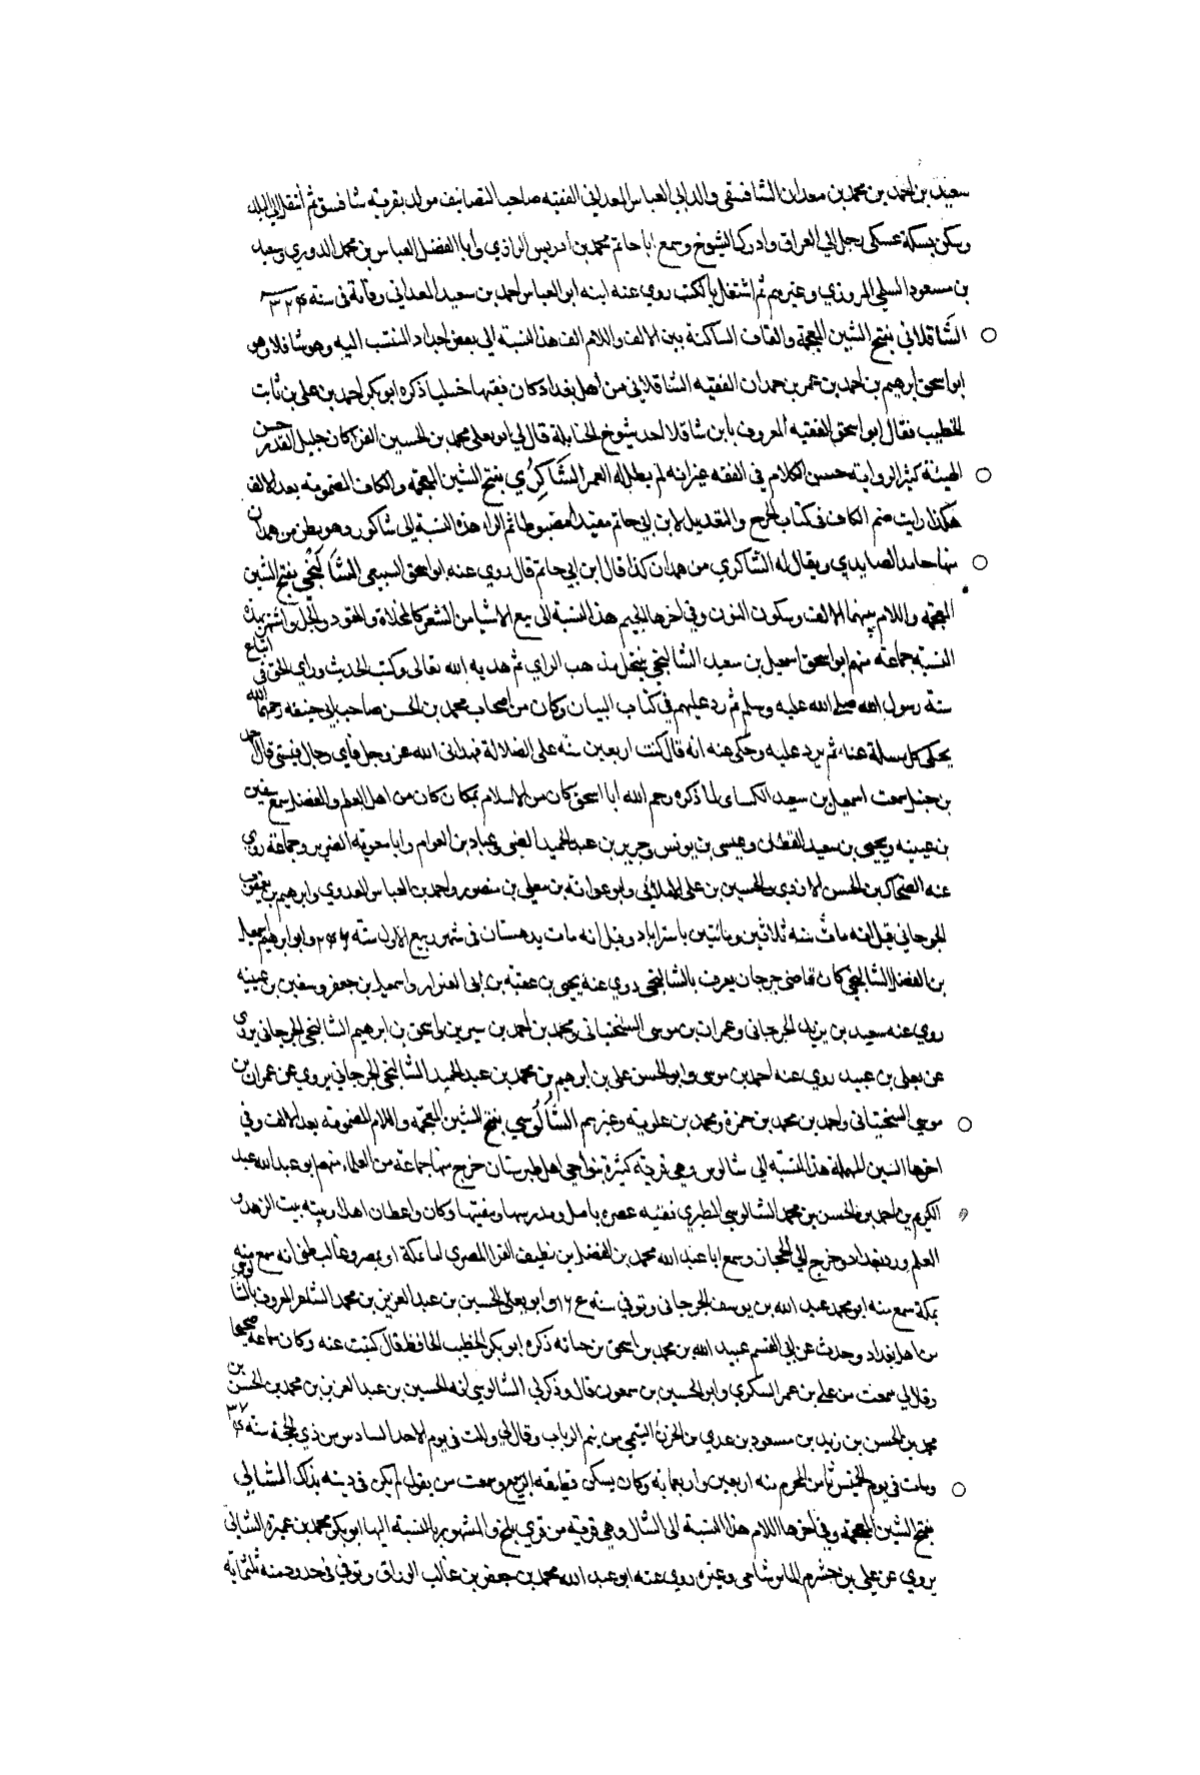 سعيد بن احمد بن محمد بن معدان الشافسقي والد ابي العباس المعداني الفقيه صاحب التصانيف مولد بقرية شافسق ثم انتقل الى البلد
وسكن بسكة عسكى رحل الى العراق وادرك الشيوخ وسمع ابا حاتم محمد بن ادريس الرازي وابا الفضل العباس بن محمد الدوري وسعيد
بن مسعود السلمي المروزي وغيرهم ثم اشتغل بالكتب روي عنه ابنه ابو العباس احمد بن سعيد المعداني وفاته في سنة
الشَاقلاني بفتح الشين المعجمة والقاف الساكنة بين الالف واللام الف هذا النسبة الى بعض اجداد المنتسب اليه وهو شاقلا وهو
ابو اسحق ابرهيم بن احمد بن عمر بن حمدان الفقيه الشاقلاني من اهل بغداد كان فقيها حنبليا ذكره ابو بكر احمد بن علي بن ثابت
الخطيب فقال ابو اسحق الفقيه المعروف بابن شاقلا احد شيوخ الحنابلة قال لي ابو يعلى محمد بن الحسين الفرا كان جليل القدر حسن
الهيئة كثير الرواية حسن الكلام في الفقه غير انه لم يطل له العمر الشَاكِرُي بفتح الشين المعجمة والكاف المضمومة بعد الالف
هكذا رايت ضم الكاف في كتاب الجرح والتعديل لابن ابي حاتم مقيدا مضبوطا ثم الرا هذه النسبة الى شاكور وهو بطن من همدان
منها حامد الصايدي ويقال له الشاكري من همدان كذا قال ابن ابي حاتم قال روي عنه ابو اسحق السبيعي الشَالَنْجُي بفتح الشين
المعجمة واللام بينهما الالف وسكون النون وفي اخرها الجيم هذا النسبة الى بيع الاشيا من الشعر كالمخلاة والمقود والجل واشتهر بهذه
النسبة جماعة منهم ابو اسحق اسمعيل بن سعيد الشالنجي ينتحل مذهب الراي ثم هديه الله تعالى وكتب الحديث وراي الحق في اتباع
سنة رسول الله صلى الله عليه وسلم ثم رد عليهم في كتاب البيان وكان من اصحاب محمد بن الحسن صاحب ابي حنيفه رحمهما الله
يحكى كل مسئلة عنه ثم يرد عليه وحكى عنه انه قال كنت اربعين سنة على الضلالة فهداني الله عز وجل فاي رجال فيتني قال احمد
بن حنبل سمعت اسمعيل بن سعيد الكساى لما ذكره رحم الله ابا اسحق كان من الاسلام بمكان كان من اهل العلم والفضل سمع سفين
بن عيينه ويحيى بن سعيد القطان وعيسى بن يونس وجرير بن عبد الحميد الضبى وعباد بن العوام وابا معوية الضرير وجماعة روي
عنه الضحاك بن الحسن الازدي والحسين بن علي الابلائي وابو عوانة بن معلى بن منصور واحمد بن العباس العدوي وابرهيم بن يعقوب
الجرجاني قيل انه مات سنة ثلاثين ومائتين باستراباد وقيل انه مات بدهستان في شهر ربيع الاول سنة ٢٤٦ وابو ابرهيم اسمعيل
بن الفضل الشالنجي كان قاضي جرجان يعرف بالشالنجي روي عنه يحيى بن عقبة بن ابي العيزار واسمعيل بن جعفر وسفين بن عيينه
روي عنه سعيد بن يزيد الجرجاني وعمران بن موسى السختياني ومحمد بن احمد بن سيرين واسحق بن ابرهيم الشالنجي الجرجاني يروي
عن يعلى بن عبيد روي عنه احمد بن موسى وابو الحسن علي بن ابرهيم بن محمد بن عبد الحميد الشالنجي الجرجاني يروي عن عمران بن
موسي السختياني واحمد بن محمد بن حمزة ومحمد بن علوية وغيرهم الشَالُوسي بفتح الشين المعجمة واللام المضمومة بعد الالف وفي
اخرها السين المهملة هذا النسبة الى شالوس وهي قرية كبيرة بنواحي اهل طبرستان خرج منها جماعة من العلماء منهم ابو عبد الله عبد
الكريم بن احمد بن الحسن بن محمد الشالوسي الطبري فقيه عصره بامل ومدرسها ومفتيها وكان واعظان اهل ارميته بيت الزهد و
العلم ورد بغداد وخرج الى الحجاز وسمع ابا عبد الله محمد بن الفضل بن نظيف الفرا المصري اما بمكة او بمصر وغالب ظني انه سمع منه
بمكة سمع منه ابو محمد عبد الله بن يوسف الجرجاني وتوفي سنة وابو يعلى الحسين بن عبد العزيز بن محمد الشاعر المعروف بالشالوسي
من اهل بغداد وحدث عن ابي القسم عبيد الله بن محمد بن اسحق بن حبابة ذكره ابو بكر الخطيب الحافظ قال كتبت عنه وكان سماعه صحيحا
وقال لي سمعت من علي بن عمر السكري وابو الحسين بن سمعون قال وذكر لي الشالوسي انه الحسين بن عبد العزيز بن محمد بن الحسين بن
محمد بن الحسن بن زيد بن مسعود بن عدي من الحزن التيمي من تيم الرباب وقال لي ولدت في يوم الاحد السادس من ذي الحجة سنة
ومات في يوم الخميس ثامن المحرم سنة اربعين واربعمائة وكان يسكن قطيعة الربيع وسمعت من يقول لم يكن في دينه بذاك الشالي
بفتح الشين المعجمة وفي اخرها اللام هذا النسبة الى الشال وهي قرية من قري بلخ المشهور بالنسبة اليها ابو بكر محمد بن عميرة الشالى
يروي عن علي بن خشرم وغيره روي عنه ابو عبد الله محمد بن جعفر بن غالب الوراق وتوفي في حدود سنة ثلثمائة